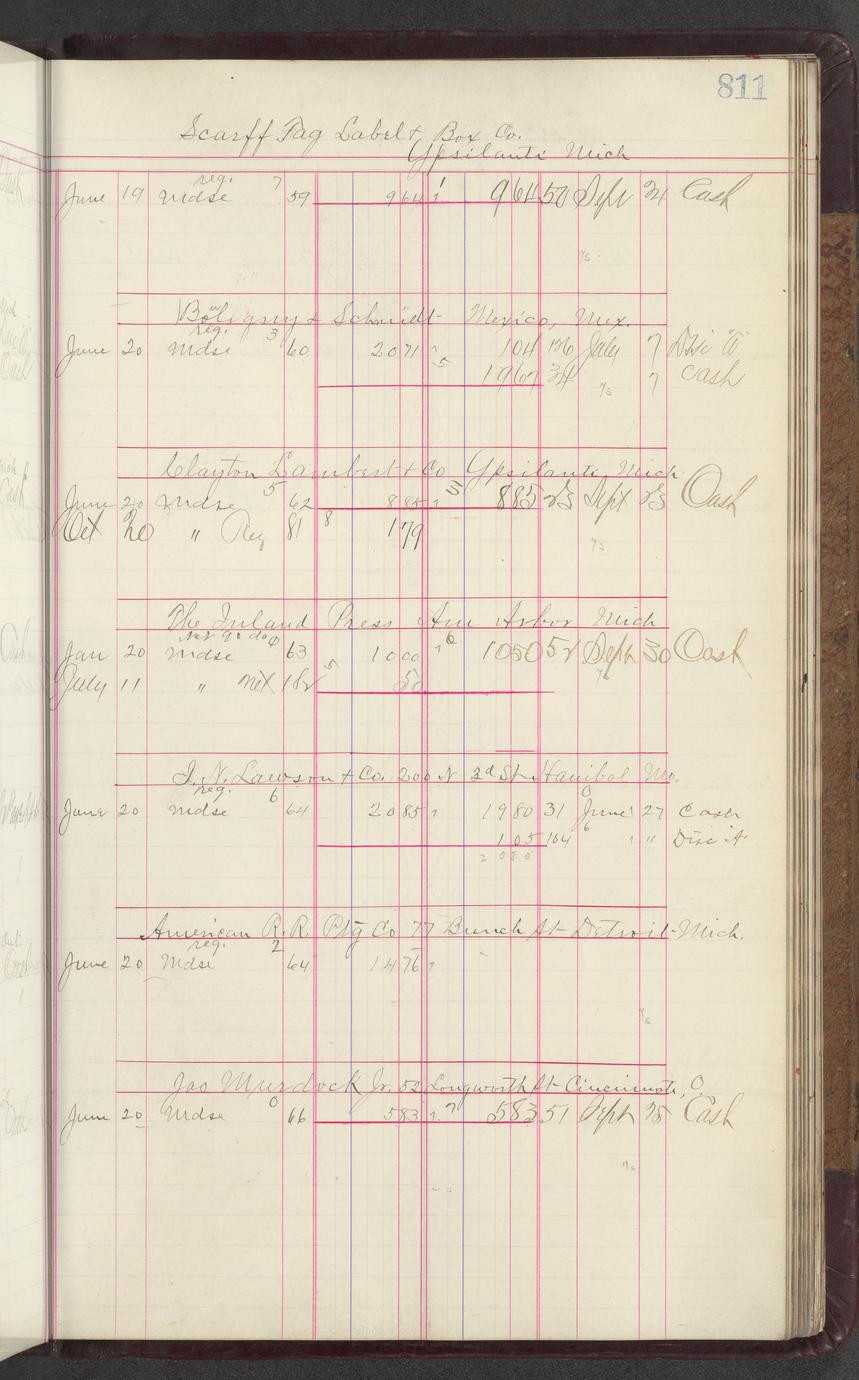 811
Scarff Tag Label & Box Co.
Ypsilanti Mich
reg.
June 19 Mdse 7 59 964 1 964 50 Sept 24 Cash
Boligny & Schmidt Mexico, Mex.
reg.
June 20 Mdse 3 60 2071 5 104 July 7 Disc "A"
1967 34 7 Cash
Clayton Lambert & Co Ypsilanti, Mich
June 20 Mdse 5 62 885 3 885 23 Sept 23 Cash
Oct 20 " Reg 81 8 179
The Inland Press Ann Arbor Mich
Net 90 da
Jan 20 Mdse 4 63 1000 6 1050 52 Sept 30 Cash
July 11 " Net 182 5 50
J. N. Lawson & Co. 200 N 3d St. Hanibal Mo.
reg.
June 20 Mdse 6 64 2085 1980 31 June 27 Cash
105 104 6 " " Disc "A"
2085
American R. R. Ptg Co 77 Bunch St Detroit Mich.
reg.
June 20 Mdse 2 64 1476
Jas Murdock Jr. 52 Longworth St Cincinnati, O
June 20 Mdse 0 66 583 7 583 51 Sept 25 Cash